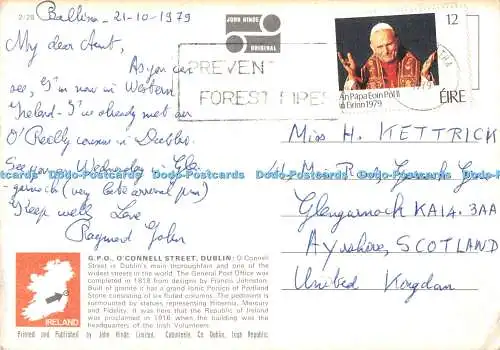 2/28
Ballina, 21-10-1979
My dear Aunt,
As you can
see, I'm now in Western
Ireland. I've already met our
O'Reilly cousins in Dublin.
See you Wednesday in Glen-
garnock (very late arrival pm)
Keep well, Love
Raymond John
JOHN HINDE
ORIGINAL
PREVENT
FOREST FIRES
12
An Pápa Eoin Pól II
in Éirinn 1979
ÉIRE
Miss H. KETTRICK
Glengarnock KA14. 3AA
Ayrshire, SCOTLAND
United Kingdom
Dodo-Postcards Dodo-Postcards Dodo-Postcards Dodo-Postcards
G.P.O., O'CONNELL STREET, DUBLIN: O'Connell
Street is Dublin's main thoroughfare and one of the
widest streets in the world. The General Post Office was
completed in 1818 from designs by Francis Johnston.
Built of granite it has a grand Ionic Portico of Portland
Stone consisting of six fluted columns. The pediment is
surmounted by statues representing Hibernia, Mercury
and Fidelity. It was here that the Republic of Ireland
was proclaimed in 1916 when the building was the
headquarters of the Irish Volunteers.
IRELAND
Printed and Published by John Hinde Limited, Cabinteely, Co. Dublin, Irish Republic.